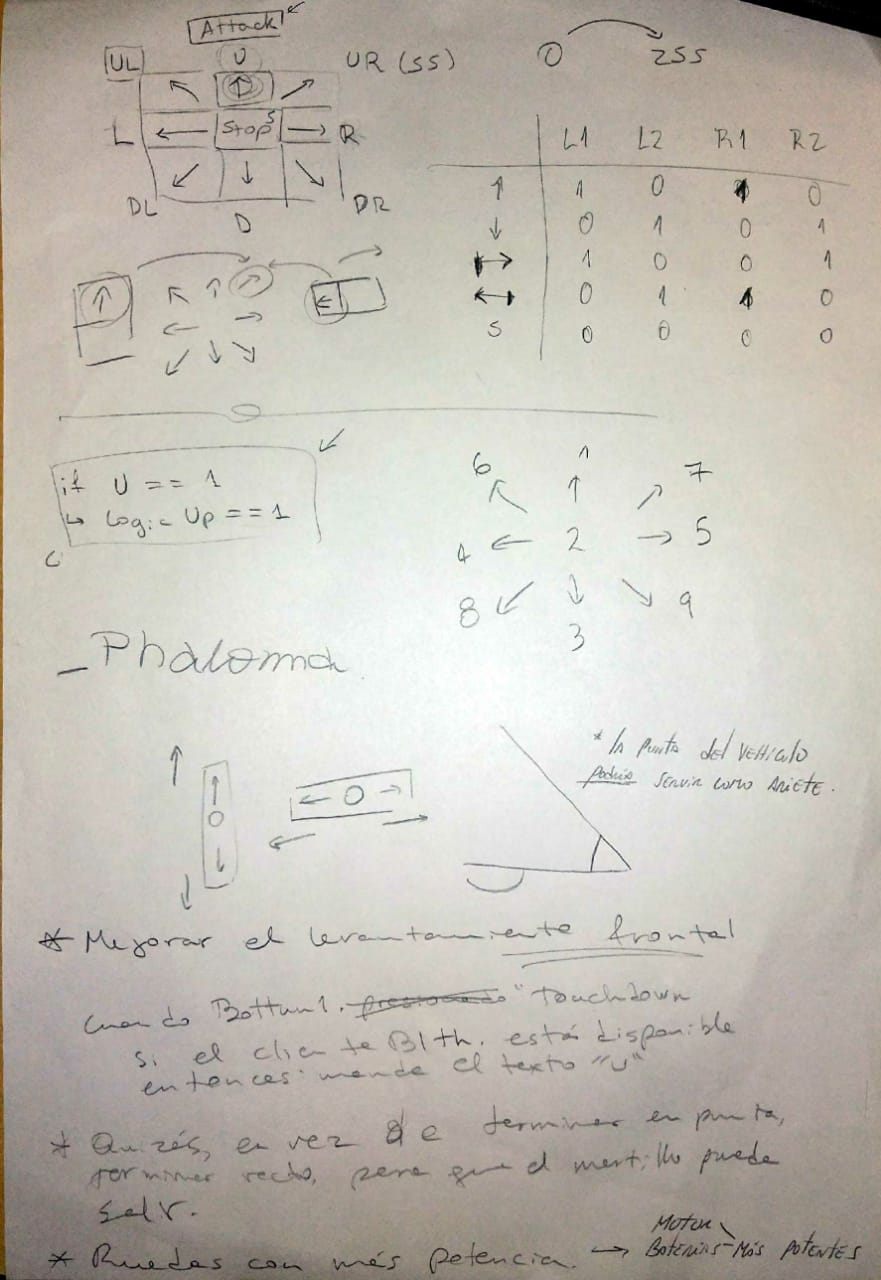 Attack
UL U UR (SS) 0 → 2SS
↖ ↑ ↗
L ← Stop S → R
↙ ↓ ↘
DL D DR
L1 L2 R1 R2
↑ 1 0 1 0
↓ 0 1 0 1
↔ 1 0 0 1
↔ 0 1 1 0
S 0 0 0 0
if U == 1
↳ Logic Up == 1
6 1 7
4 ← 2 → 5
8 3 9
_Phaloma
* La punta del vehículo
podría servir como ariete.
← O →
O
* Mejorar el levantamiente frontal
Cuando Bottun1. presionado "touchdown
si el cliente Blth. está disponible
entonces: mande el texto "U"
* Quizás, en vez de terminar en punta,
terminar recto, para que el martillo pueda
salir.
* Ruedas con más potencia. → Motor
Baterías - Más potentes